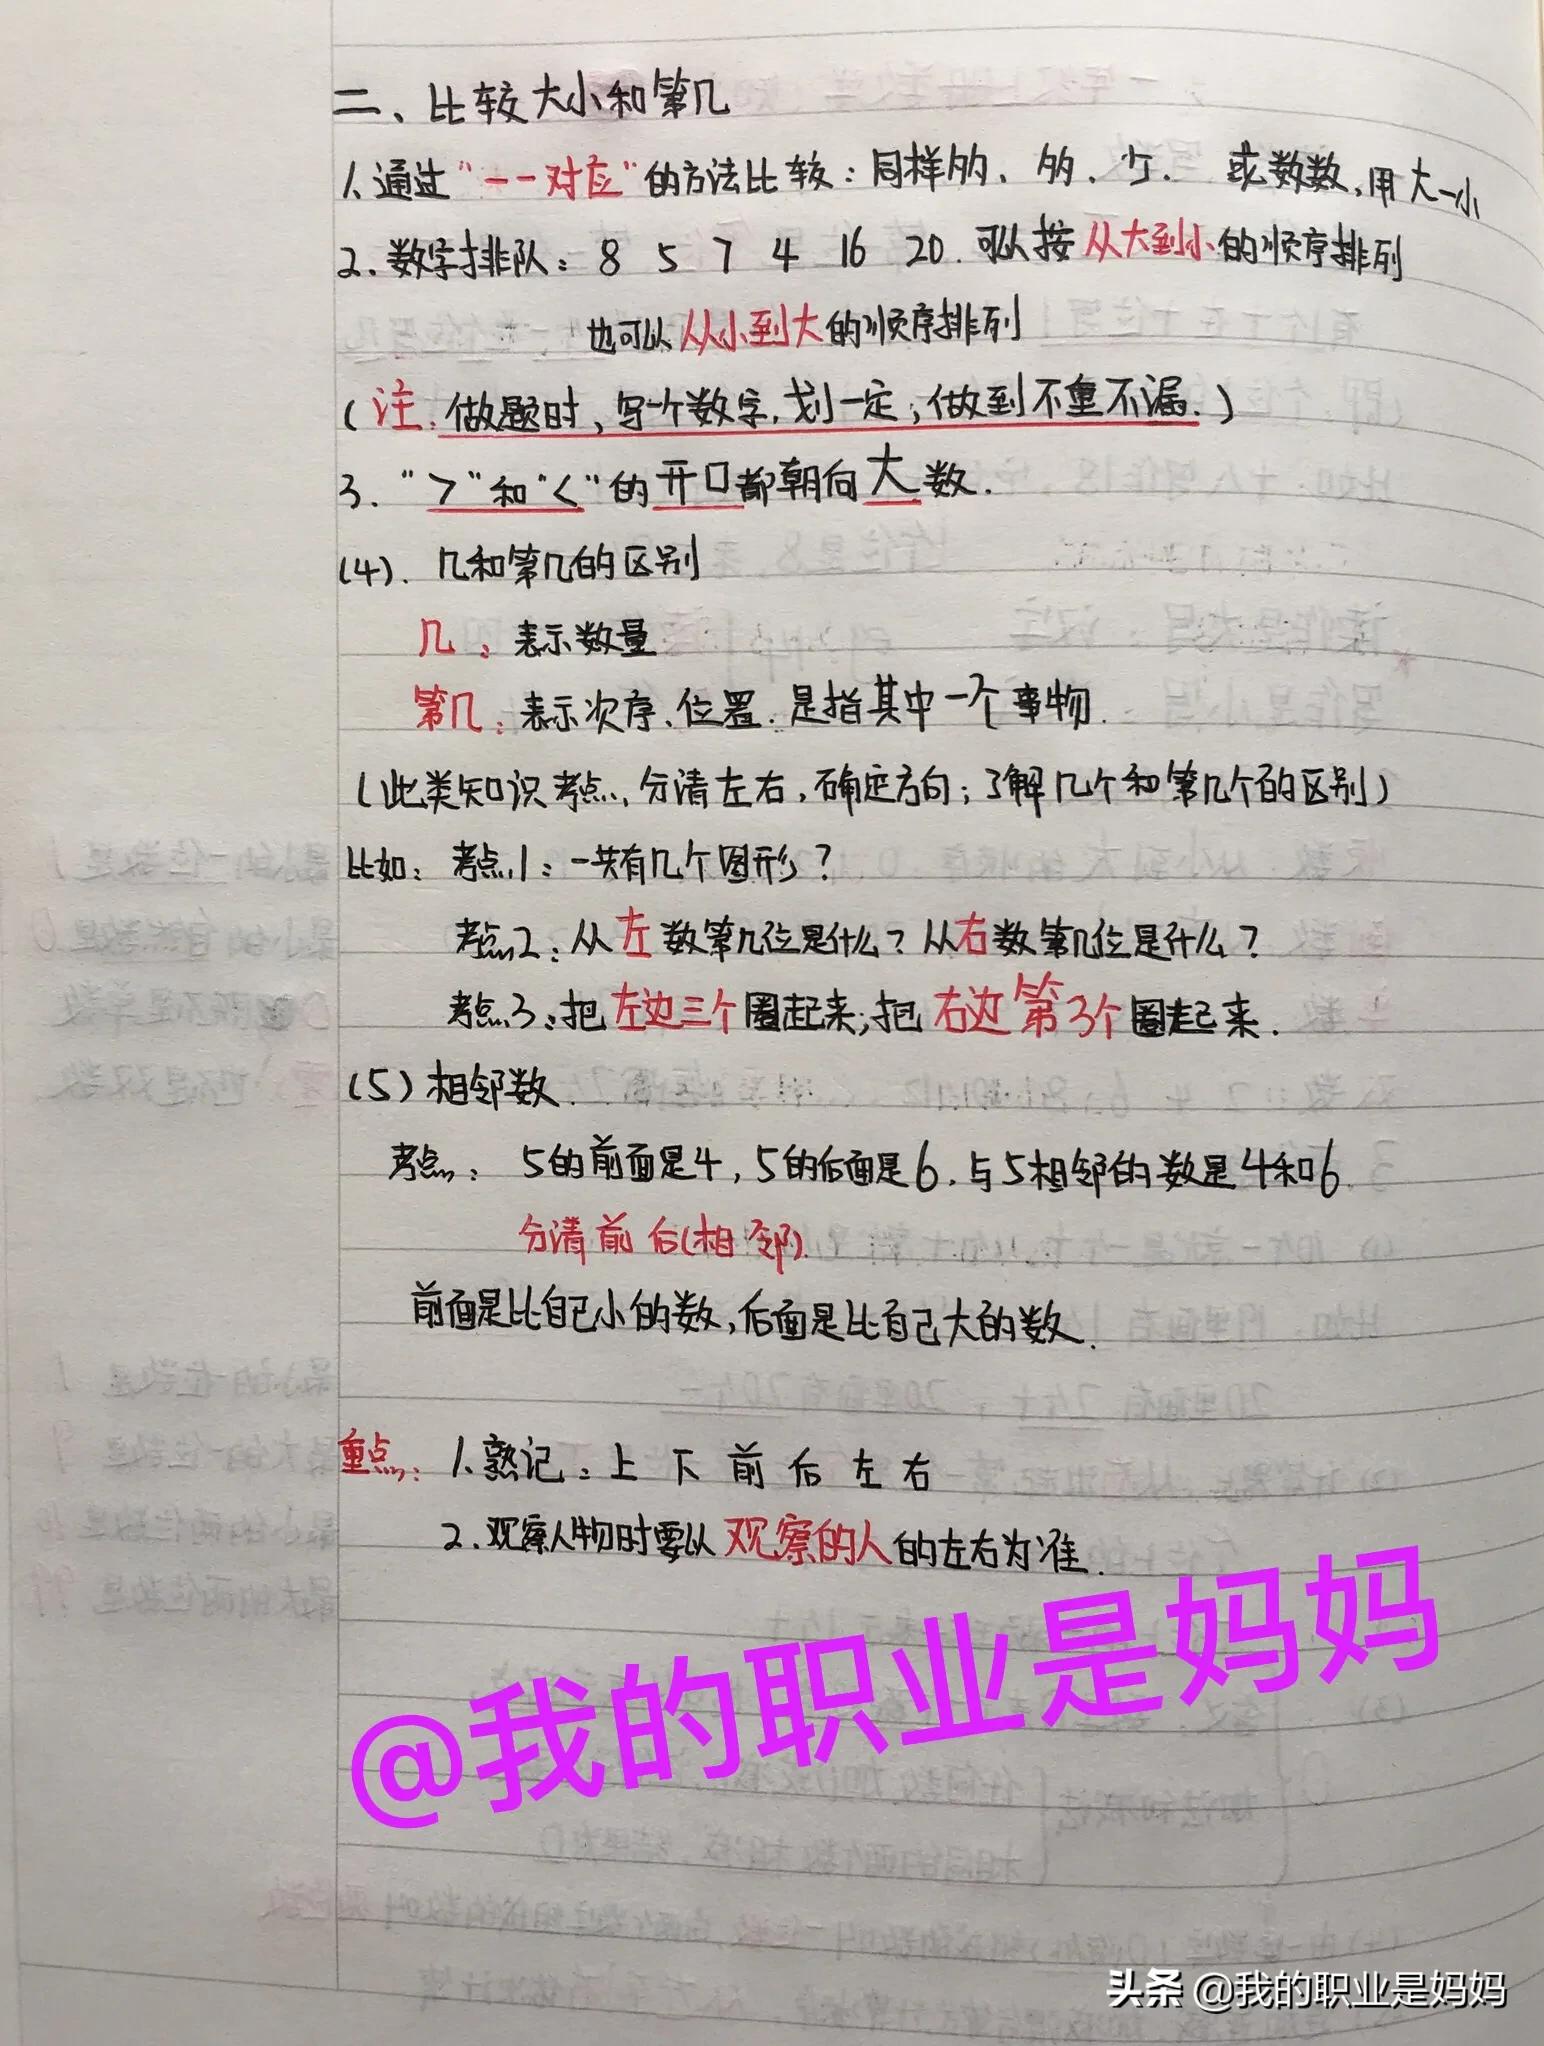 二、比较大小和第几
1.通过“一一对应”的方法比较：同样多的、多的、少、或数数,用大一小
2.数字排队：8 5 7 4 16 20.可以按从大到小的顺序排列
也可以从小到大的顺序排列
(注.做题时,写一个数字,划一定;做到不重不漏.)
3.“>”和“<”的开口都朝向大数.
(4).几和第几的区别
几:表示数量
第几:表示次序、位置.是指其中一个事物.
(此类知识考点,分清左右,确定方向;了解几个和第几个的区别)
比如:考点1:一共有几个图形?
考点2:从左数第几位是什么?从右数第几位是什么?
考点3:把左边三个圈起来;把右边第3个圈起来.
(5)相邻数.
考点:5的前面是4,5的后面是6.与5相邻的数是4和6.
分清前后(相邻).
前面是比自己小的数,后面是比自己大的数.
重点:1.熟记:上下前后左右
2.观察人物时要以观察的人的左右为准.
@我的职业是妈妈
头条 @我的职业是妈妈